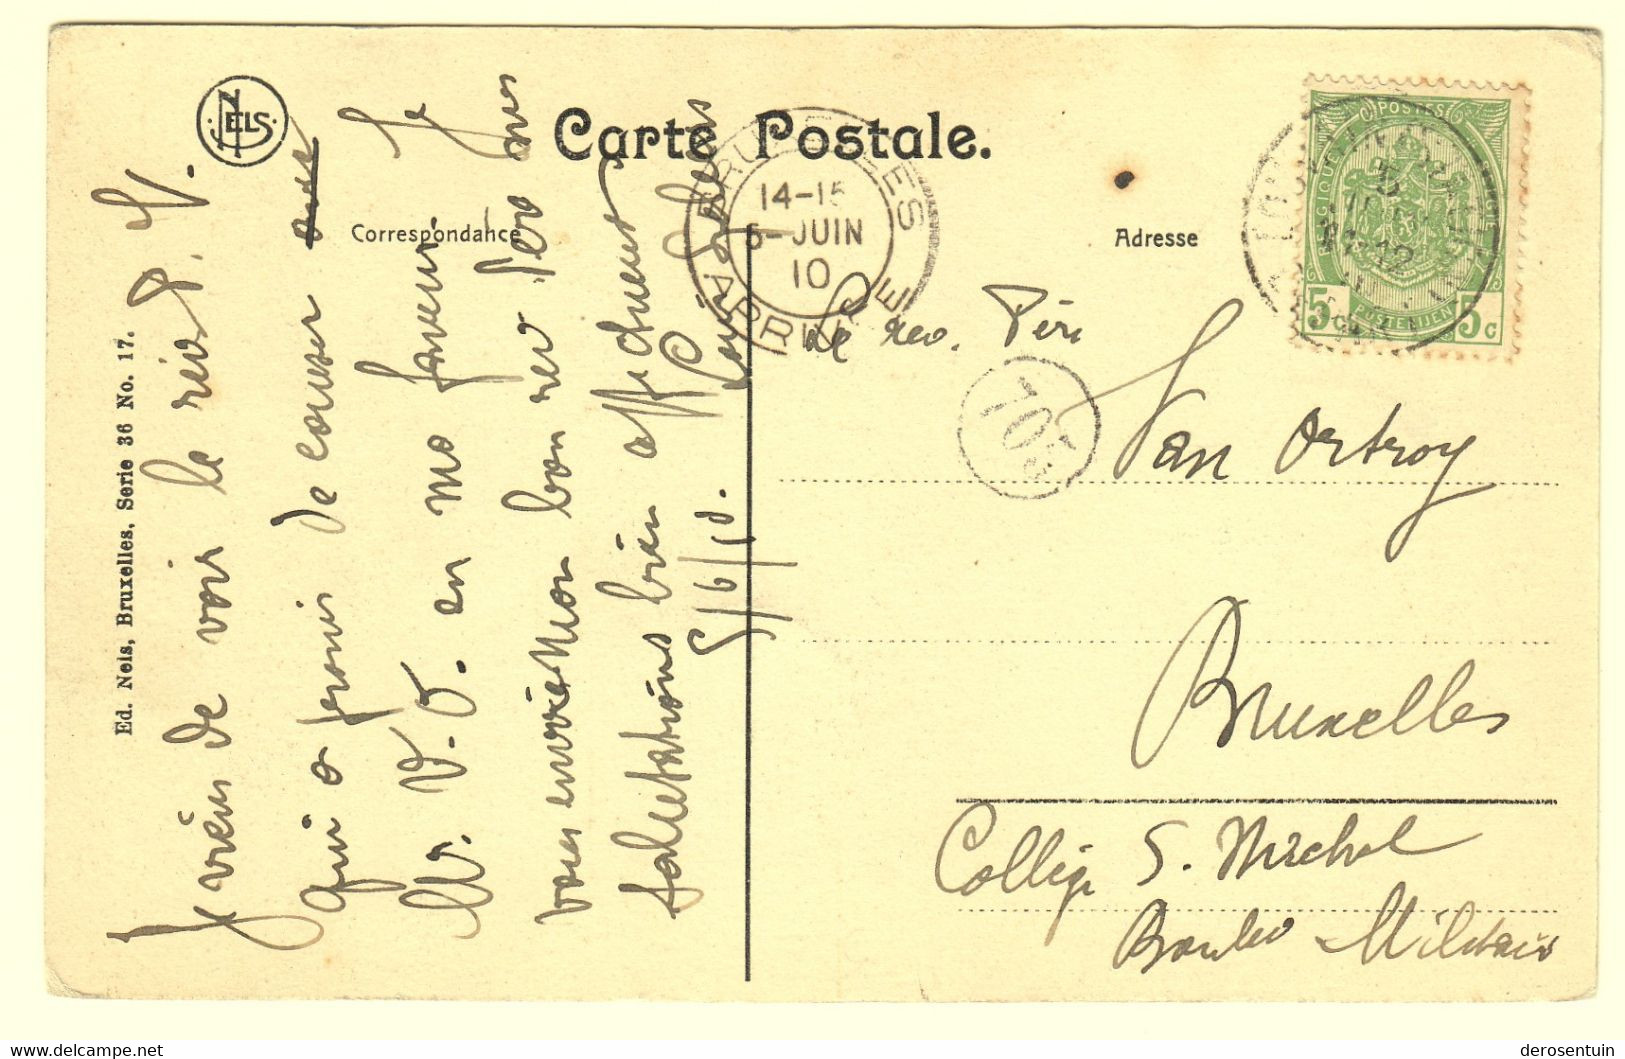 NELS
Carte Postale.
Correspondance
Adresse
Ed. Nels, Bruxelles, Serie 36 No. 17.
BRUXELLES
14-15
5-JUIN
10
ARRIVEE
POSTES
BELGIQUE
POSTERIJEN
5c
5c
12
705
Le Rev. Père
Van Ortroy
Bruxelles
Collège S. Michel
Boulev Militaire
Je viens de voir le rév. P.
qui a promis de causer
V. P. en ma faveur. Je
vous envie mon bon rev Père mes
salutations bien affectueuses
5/6/10.